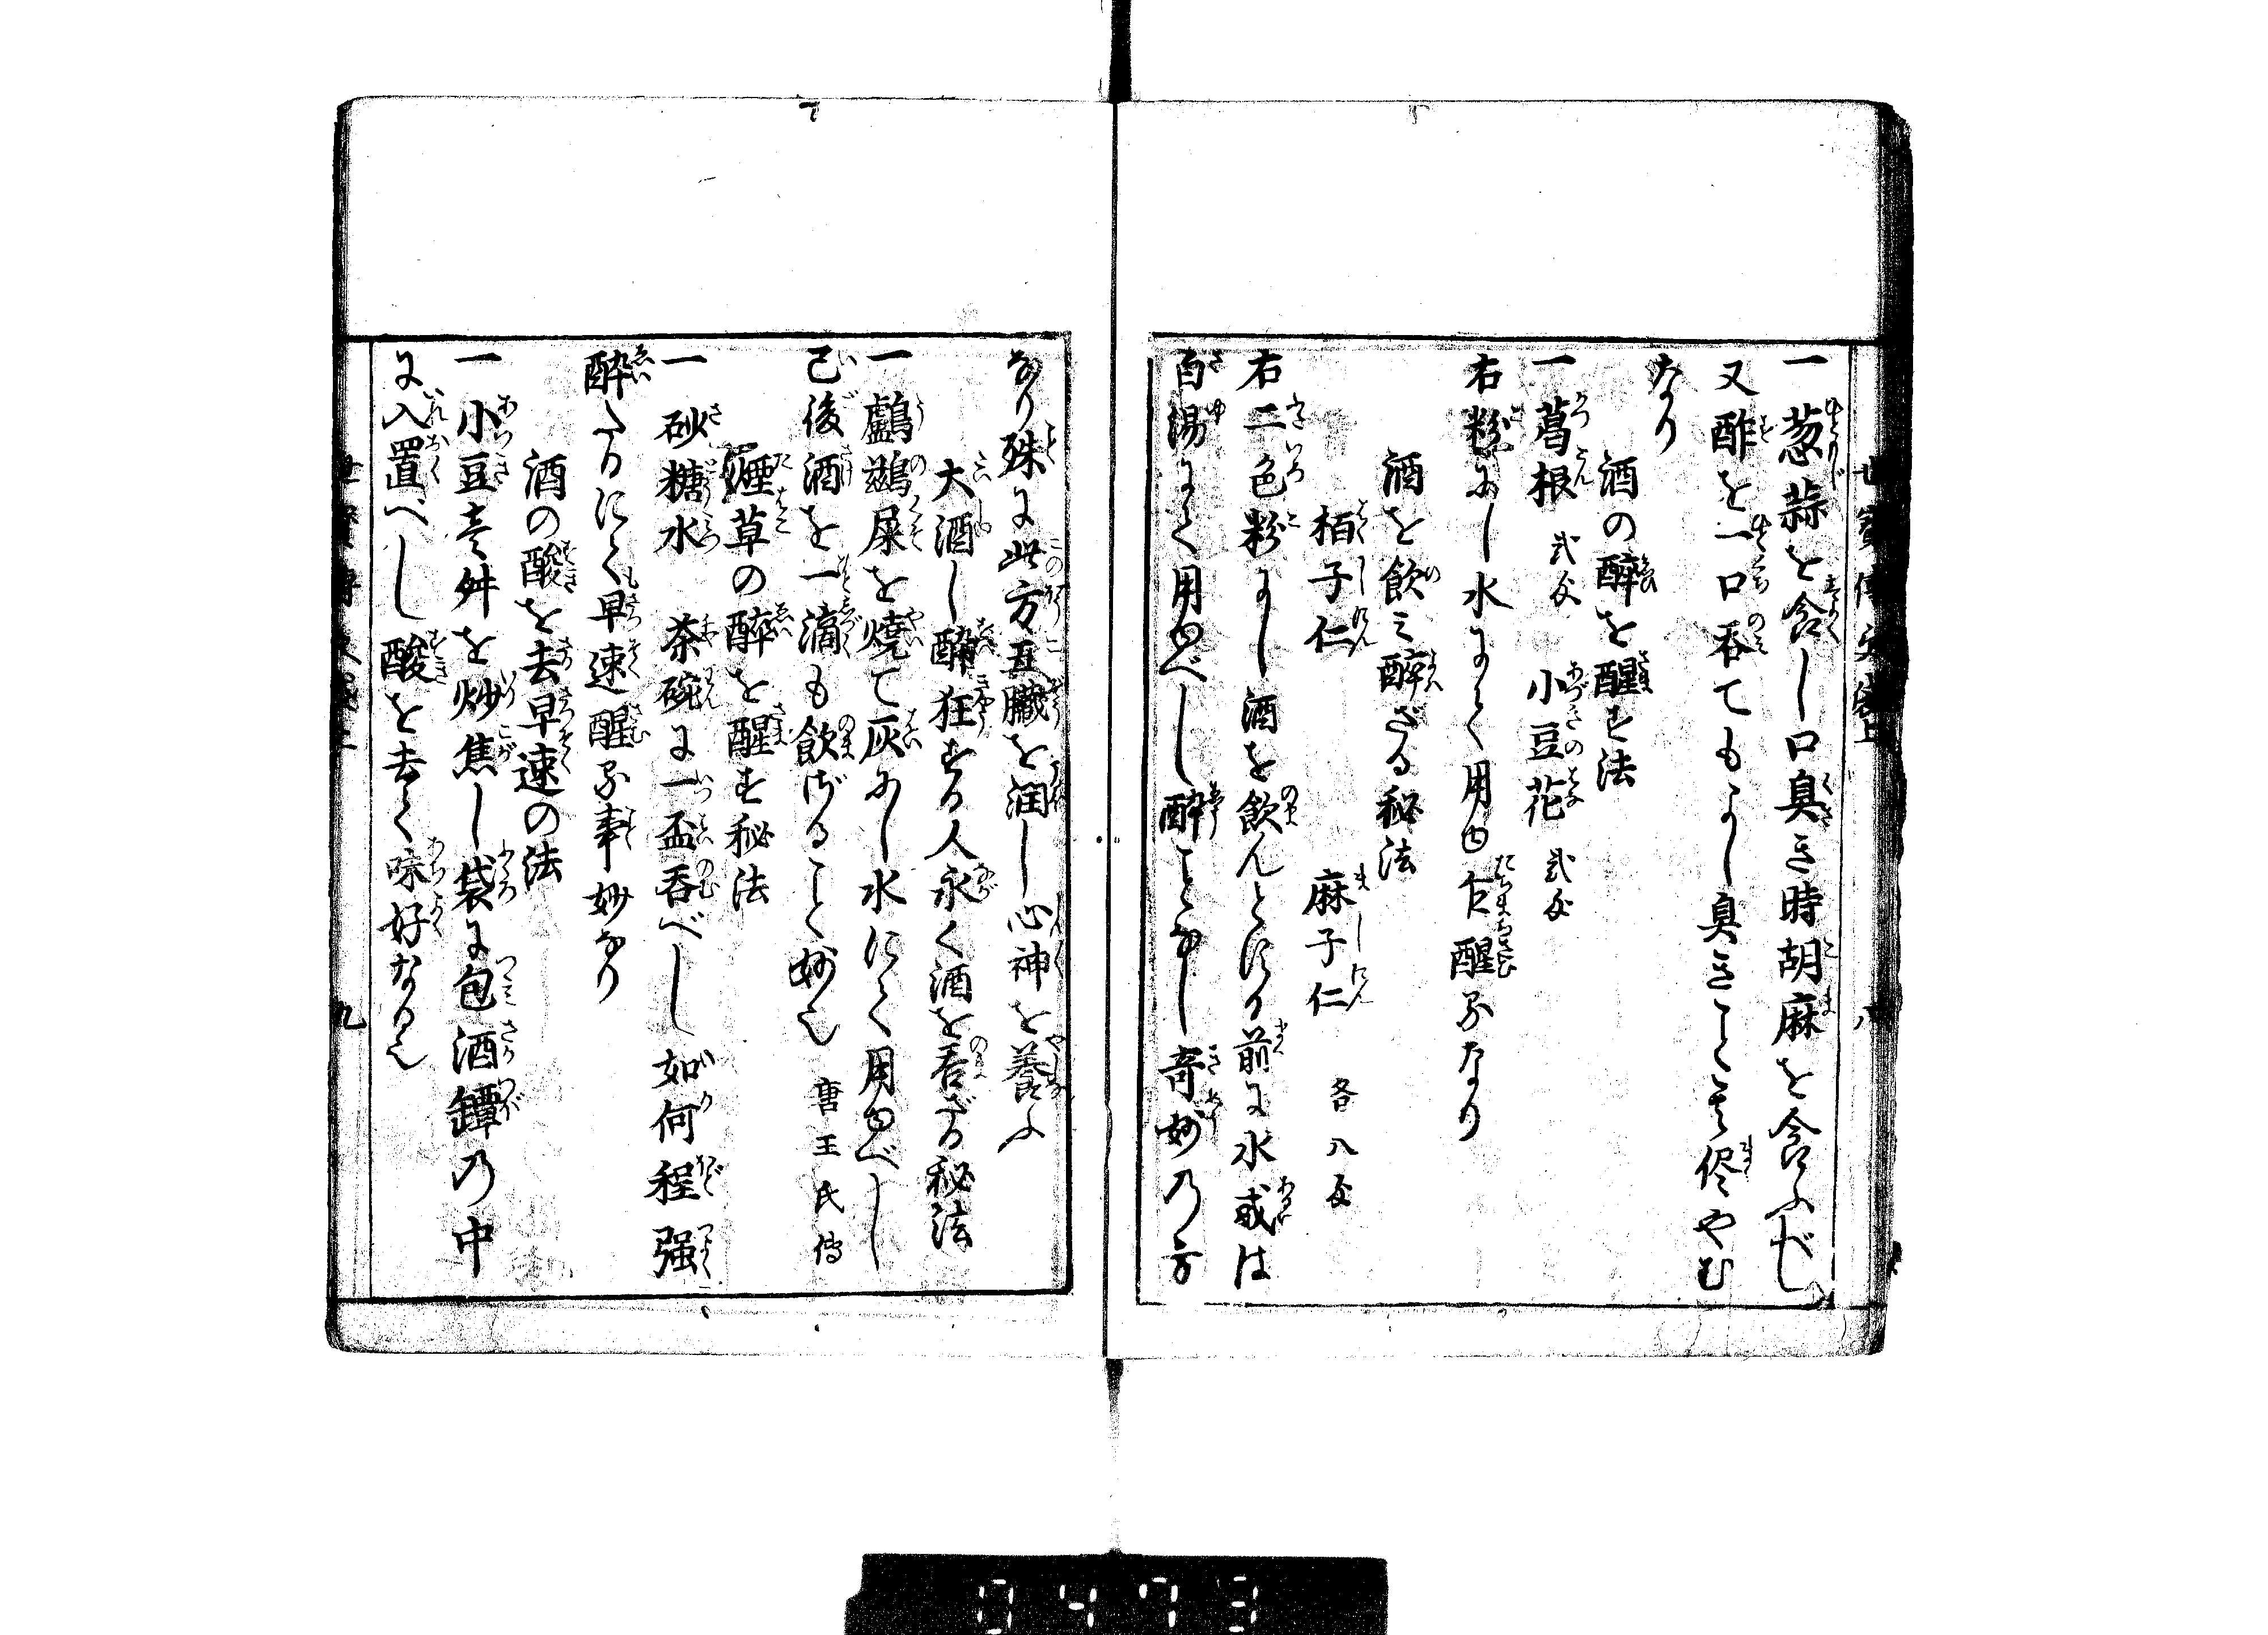 一葱蒜を食し口臭き時胡麻を食ふべし
又酢を一口呑てもよし臭きこと其侭やむ
なり
酒の醉を醒す法
一葛根 弐匁 小豆花 弐匁
右粉にし水にて用ゆ乍醒るなり
酒を飲て醉ざる秘法
栢子仁 麻子仁 各八匁
右二色粉にし酒を飲んとする前に水或は
白湯にて用ゆべし醉ことなし奇妙の方
なり殊に此方五臓を潤し心神を養ふ
大酒し醉狂する人永く酒を呑ざる秘法
一鸕鷀屎を燒て灰にし水にて用ゆべし
已後酒を一滴も飲ざること妙也 唐王氏傳
煙草の醉を醒す秘法
一砂糖水 茶碗に一盃呑べし如何程强
醉たるにても早速醒る事妙なり
酒の酸を去早速の法
一小豆壱舛を炒焦し袋に包酒罈の中
に入置べし酸を去て味好なる也
八
九